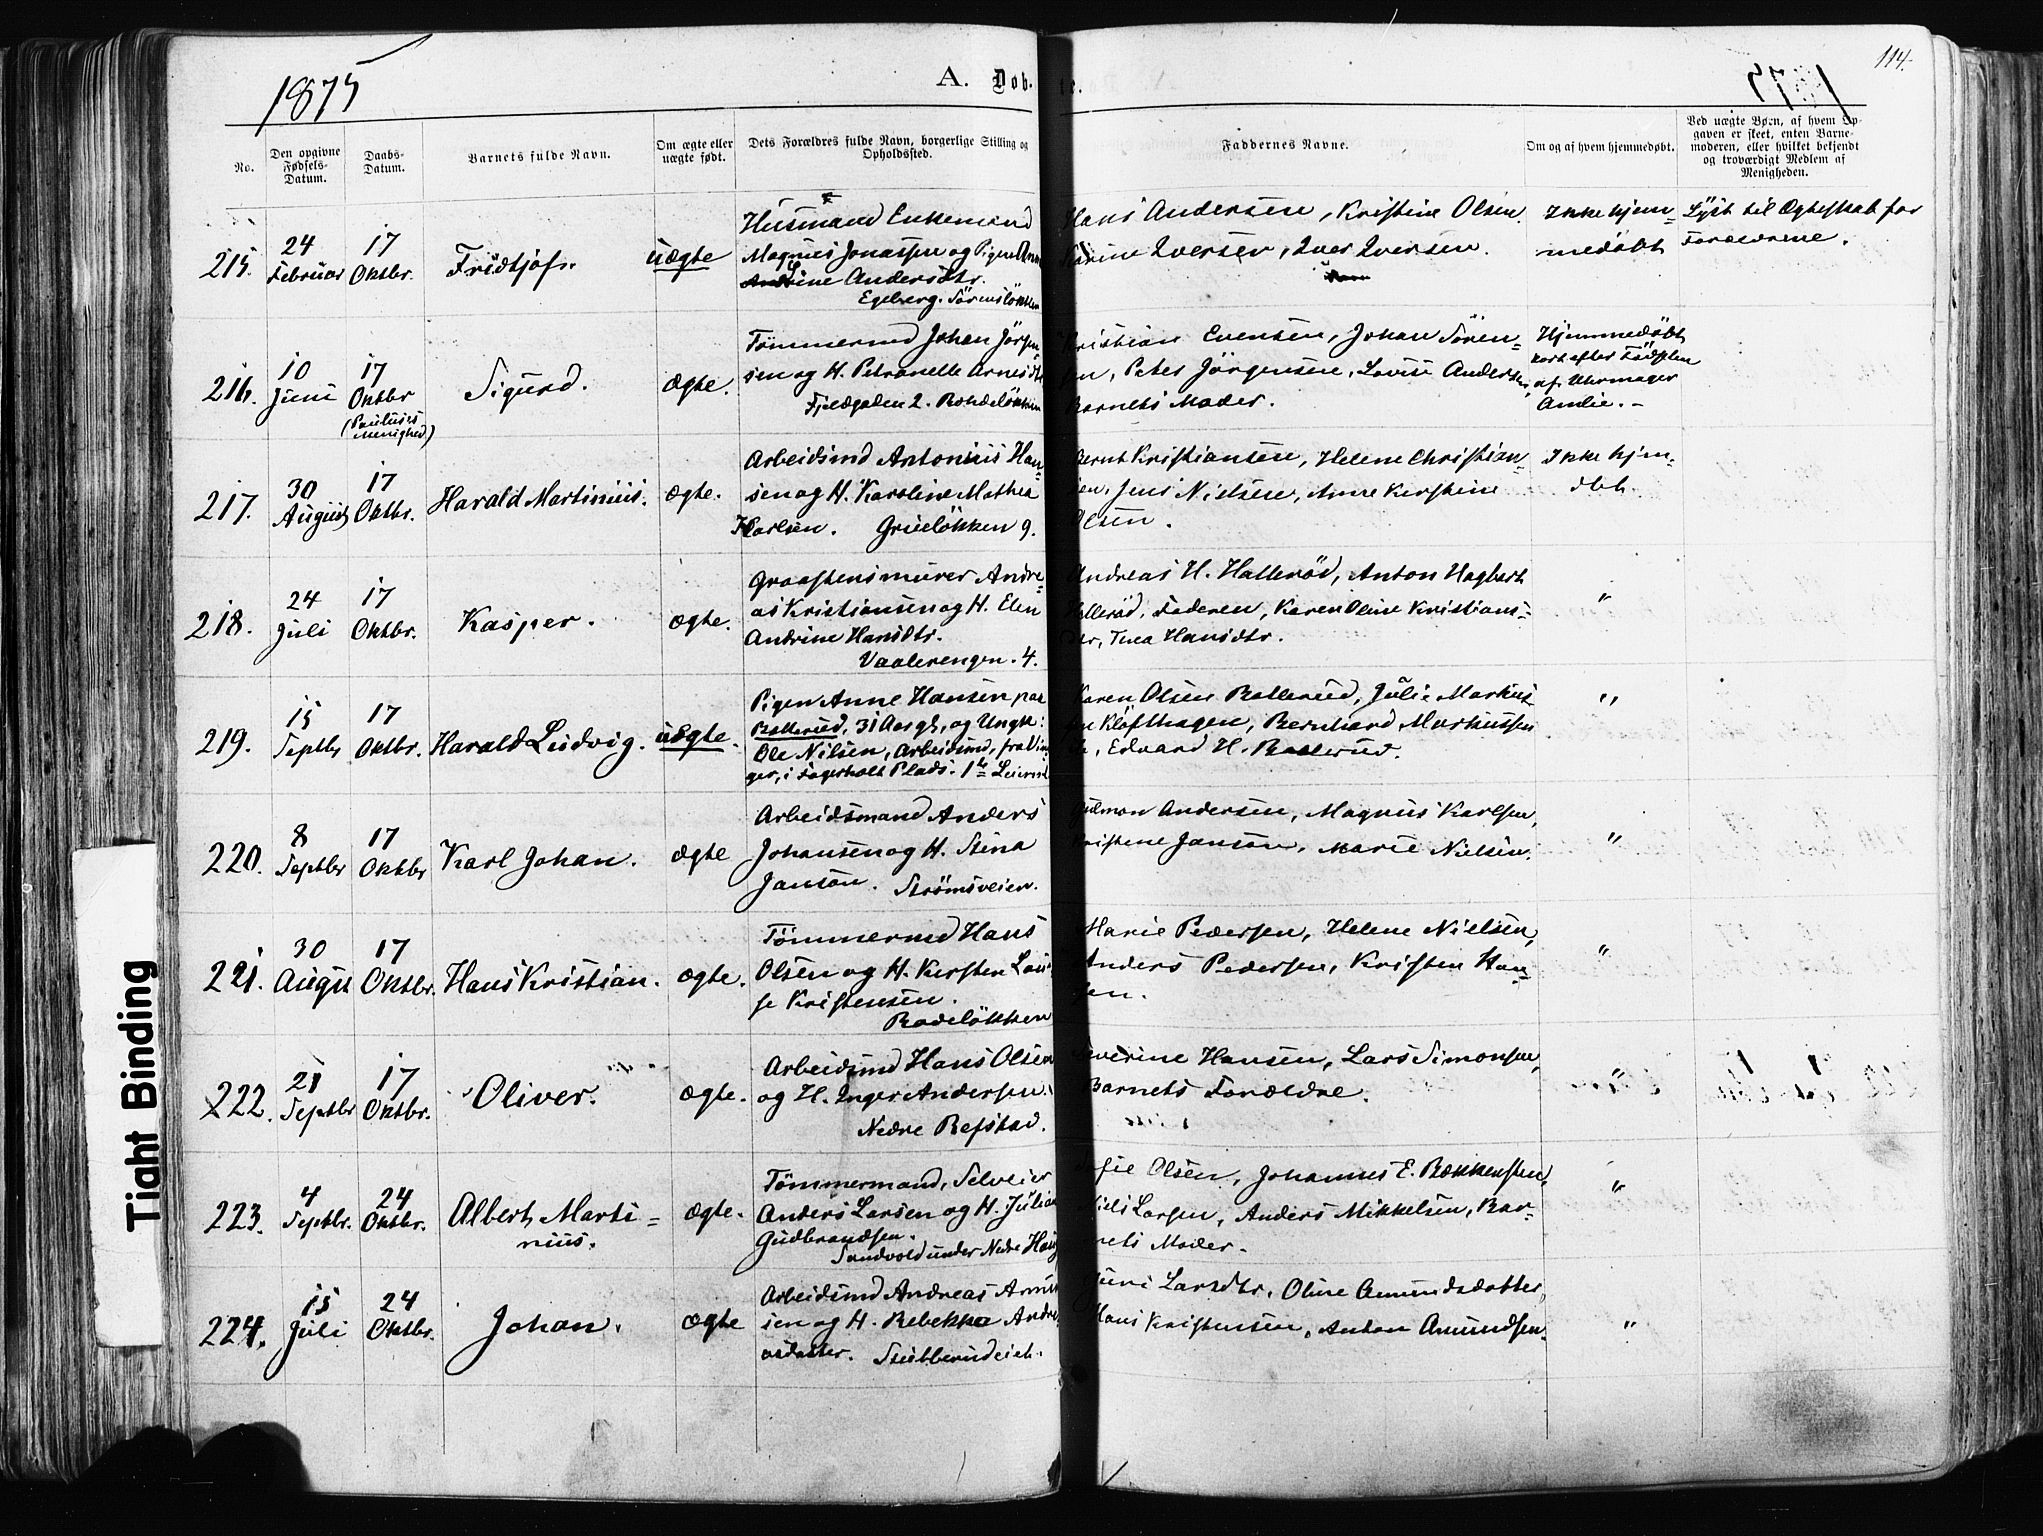 1875
A. Døb-
te.
1875
114.
No.
Den opgivne Fødsels-Datum.
Daabs-Datum.
Barnets fulde Navn.
Om ægte eller uægte født.
Dets Forældres fulde Navn, borgerlige Stilling og Opholdssted.
Faddernes Navne.
Om og af hvem hjemmedøbt.
Ved uægte Børn, af hvem Op-
gaven er skeet, enten Barne-
moderen, eller hvilket bekjendt
og troværdigt Medlem af
Menigheden.
215. 24 Februar 17 Oktbr. Fridtjof. uægte
Husmand Enkemand
Magnus Jonassen og Pigen Anne
Andersdtr.
Egeberg. Sörensløkken
Hans Andersen, Kristine Olsen
Iversen, Iver Iversen.
Ikke hjem-
medøbt
Lyst til Ægteskab for
Forældrene.
216. 10 Juni 17 Oktbr (Paulus's Menighed) Sigurd. ægte.
Tømmermd Johan Jörgen-
sen og H. Petronelle Arnesdtr
Fjeldgaden 2. Rodeløkken
Kristian Evensen, Johan Sören-
sen, Peter Jörgensen, Lovise Andersen,
Barnets Moder.
Hjemmedøbt
kort efter Födslen
af Uhrmager
217. 30 August 17 Oktbr. Harald Martinius. ægte.
Arbeidsmd Antonius Han-
sen og H. Karoline Mathea
Karlsen. Grüneløkken 9.
Bernt Kristiansen, Helene Christian-
sen, Jens Nielsen, Anne Kirstine
Olsen.
Ikke hjem-
dbt.
218. 24 Juli 17 Oktbr. Kasper. ægte.
Graastensmurer Andre-
as Kristiansen og H. Elen
Andrine Hansdtr.
Vaalerengen. 4.
Andreas H. Hallerød, Anton Hagbert
Hallerød, Faderen, Karen Oline Kristians-
dtr, Thea Hansdtr.
"
219. 15 Septbr 17 Oktbr. Harald Ludvig. uægte.
Pigen Anne Hansen paa
Ballerud, 31 Aar gl, og Ungk:
Ole Nilsen, Arbeidsmd, fra Vin-
ger, i Fagerholt Plads. 1ste Leierm
Karen Olsen Ballerud, Julie Markus-
sen Kløfthagen, Bernhard Markussen
Edvard H. Ballerud.
"
220. 8 Septbr 17 Oktbr Karl Johan. ægte
Arbeidsmand Anders
Johansen og H. Stina
Janson. Strømsveien.
Gulman Andersen, Magnus Karlsen,
Kristine Janson, Marie Nielsen.
"
221. 30 August 17 Oktbr. Hans Kristian. ægte.
Tömmermd Hans
Olsen og H. Kirsten Loui-
se Kristensen.
Rodeløkken
Marie Pedersen, Helene Nielsen,
Anders Pedersen, Kristen Han-
sen.
"
222. 21 Septbr 17 Oktbr. Oliver. ægte.
Arbeidsmd Hans Olsen
og H. Inger Andersen.
Nedre Refstad.
Severine Hansen, Lars Simonsen,
Barnets Forældre.
"
223. 4 Septbr. 24 Oktbr. Albert Marti-
nius. ægte.
Tömmermand, Selveier
Anders Larsen og H. Juliane
Gudbrandsen.
Sandvold under Nedre Haug
Sofie Olsen, Johannes E. Bækkensten,
Niels Larsen, Anders Mikkelsen, Bar-
nets Moder.
"
224. 15 Juli 24 Oktbr. Johan. ægte
Arbeidsmd Andreas Amund-
sen og H. Rebekka Andre-
asdatter. Stubberud eiet.
Guri Larsdtr, Oline Amundsdatter,
Hans Kristensen, Anton Amundsen.
"
Tight Binding